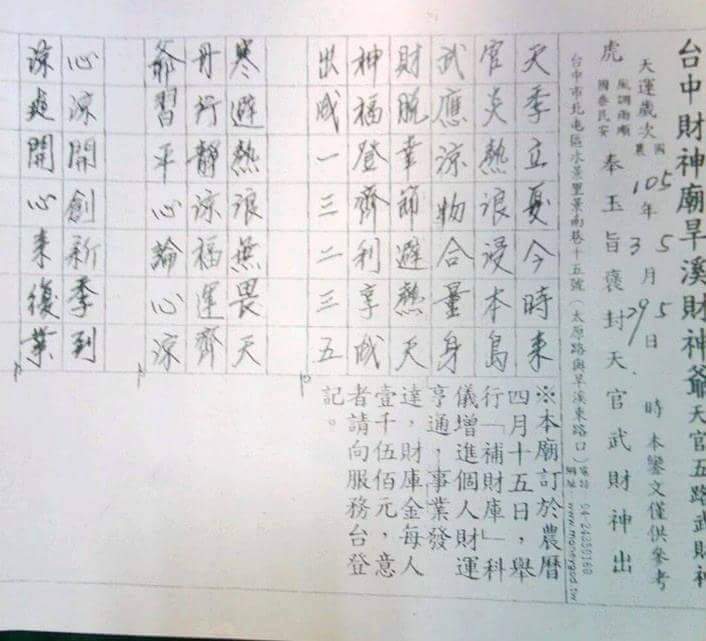 台中財神廟旱溪財神爺天官五路武財神
天運歲次 國農 105年 3 5月 29 5日 時 本鑾文僅供參考
虎 風調雨順 國泰民安 奉玉旨褒封天官武財神出
台中市北屯區水景里景南巷十五號(太原路與旱溪東路口)電話 網址 www.moneygod.tw
天季立夏今時來
官炎熱浪浸本島
武應涼物合量身
財脫幸節避熱天
神福登齊利享成
出成一三二三五
寒避熱浪無畏天
丹行靜涼福運齊
爺習平心論心涼
心涼開創新季到
涼爽開心來復業
※本廟訂於農曆
四月十五日,舉
行「補財庫」科
儀增進個人財運
亨通,事業發
達,財庫金每人
壹千伍佰元,意
者請向服務台登
記。